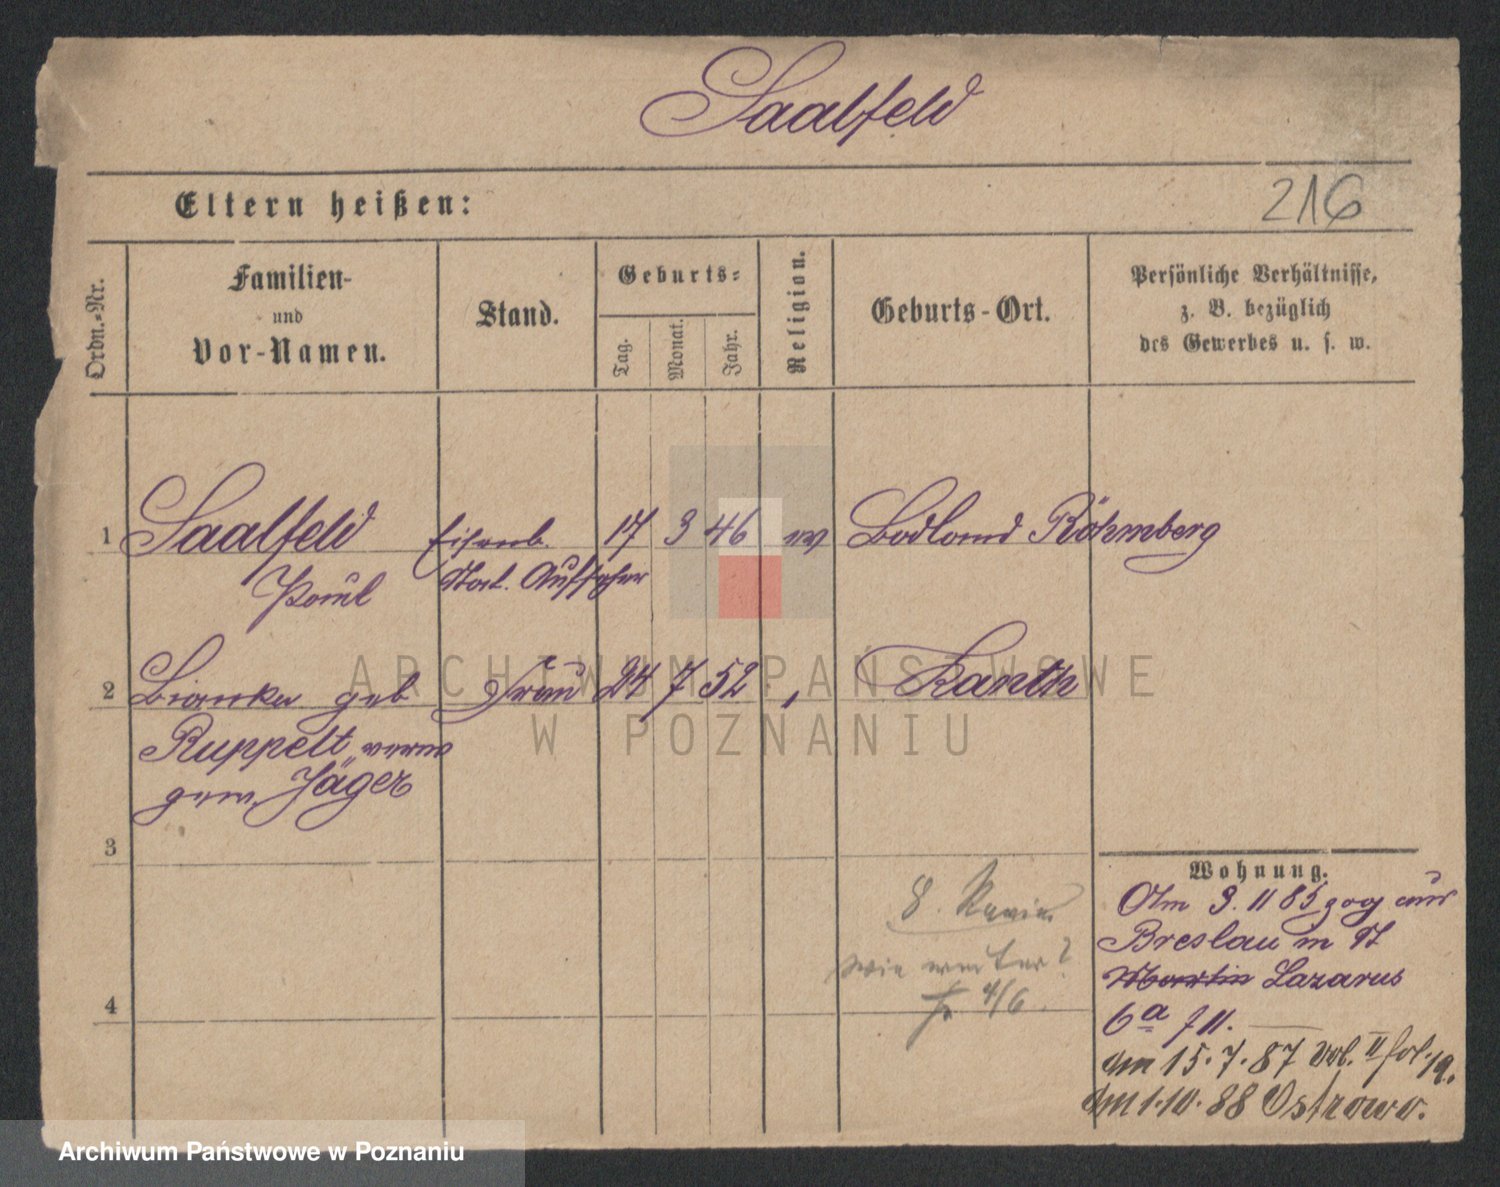 Saalfeld
Eltern heißen:
216
Ordn.-Nr.
Familien-
und
Vor-Namen.
Stand.
Geburts-
Tag.
Monat.
Jahr.
Religion.
Geburts-Ort.
Persönliche Verhältnisse,
z. B. bezüglich
des Gewerbes u. s. w.
1 Saalfeld Eisenb. 17 3 46 ev Bodland Röhmberg
Paul Stat. Aufseher
2 Bianka geb Frau 24 7 52 " Kanth
Ruppelt, verw
gew. Jäger
3
4
Wohnung.
Am 3. 11 85 zog aus
Breslau in St
Martin Lazarus
6a
am 15.7.87 Vol. II fol. 19.
am 1.10.88 Ostrowo.
8. Revier
wie weiter?
4/6
ARCHIWUM PAŃSTWOWE
W POZNANIU
Archiwum Państwowe w Poznaniu